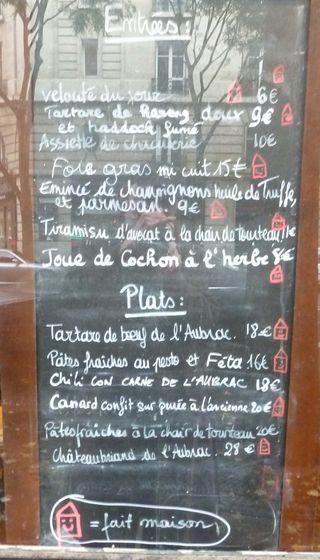 Entrées:
Velouté du jour 6€
Tartare de hareng doux 9€
et haddock fumé
Assiette de charcuterie 10€
Foie gras mi cuit 15€
Emincé de champignons huile de Truffe,
et parmesan. 9€
Tiramisu d'avocat à la chair de tourteau 11€
Joue de Cochon à l'herbe 8€
Plats:
Tartare de boeuf de l'Aubrac. 18€
Pâtes fraîches au pesto et Féta 16€
Chili CON CARNE DE L'AUBRAC 18€
Canard confit sur purée à l'ancienne 20€
Pâtes fraîches à la chair de tourteau 20€
Châteaubriand de l'Aubrac. 28€
= fait maison